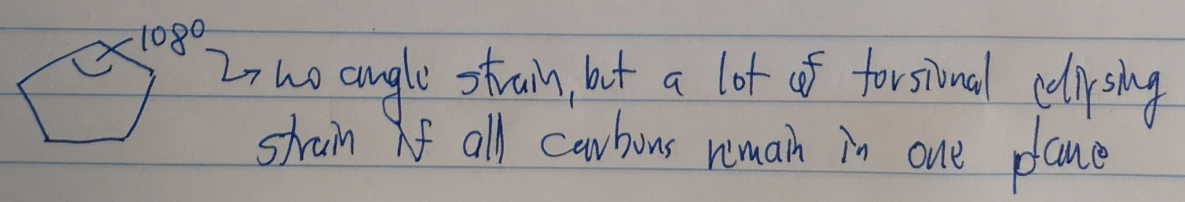 108° ↳ no angle strain, but a lot of torsional eclipsing
strain if all carbons remain in one plane